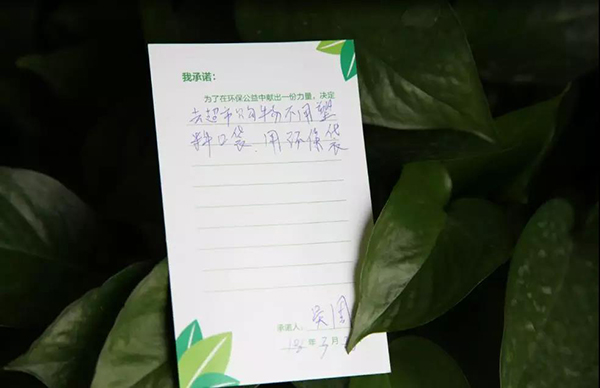 我承诺:
为了在环保公益中献出一份力量,决定
去超市购物不用塑
料口袋、用环保袋
承诺人:吴国
年3月